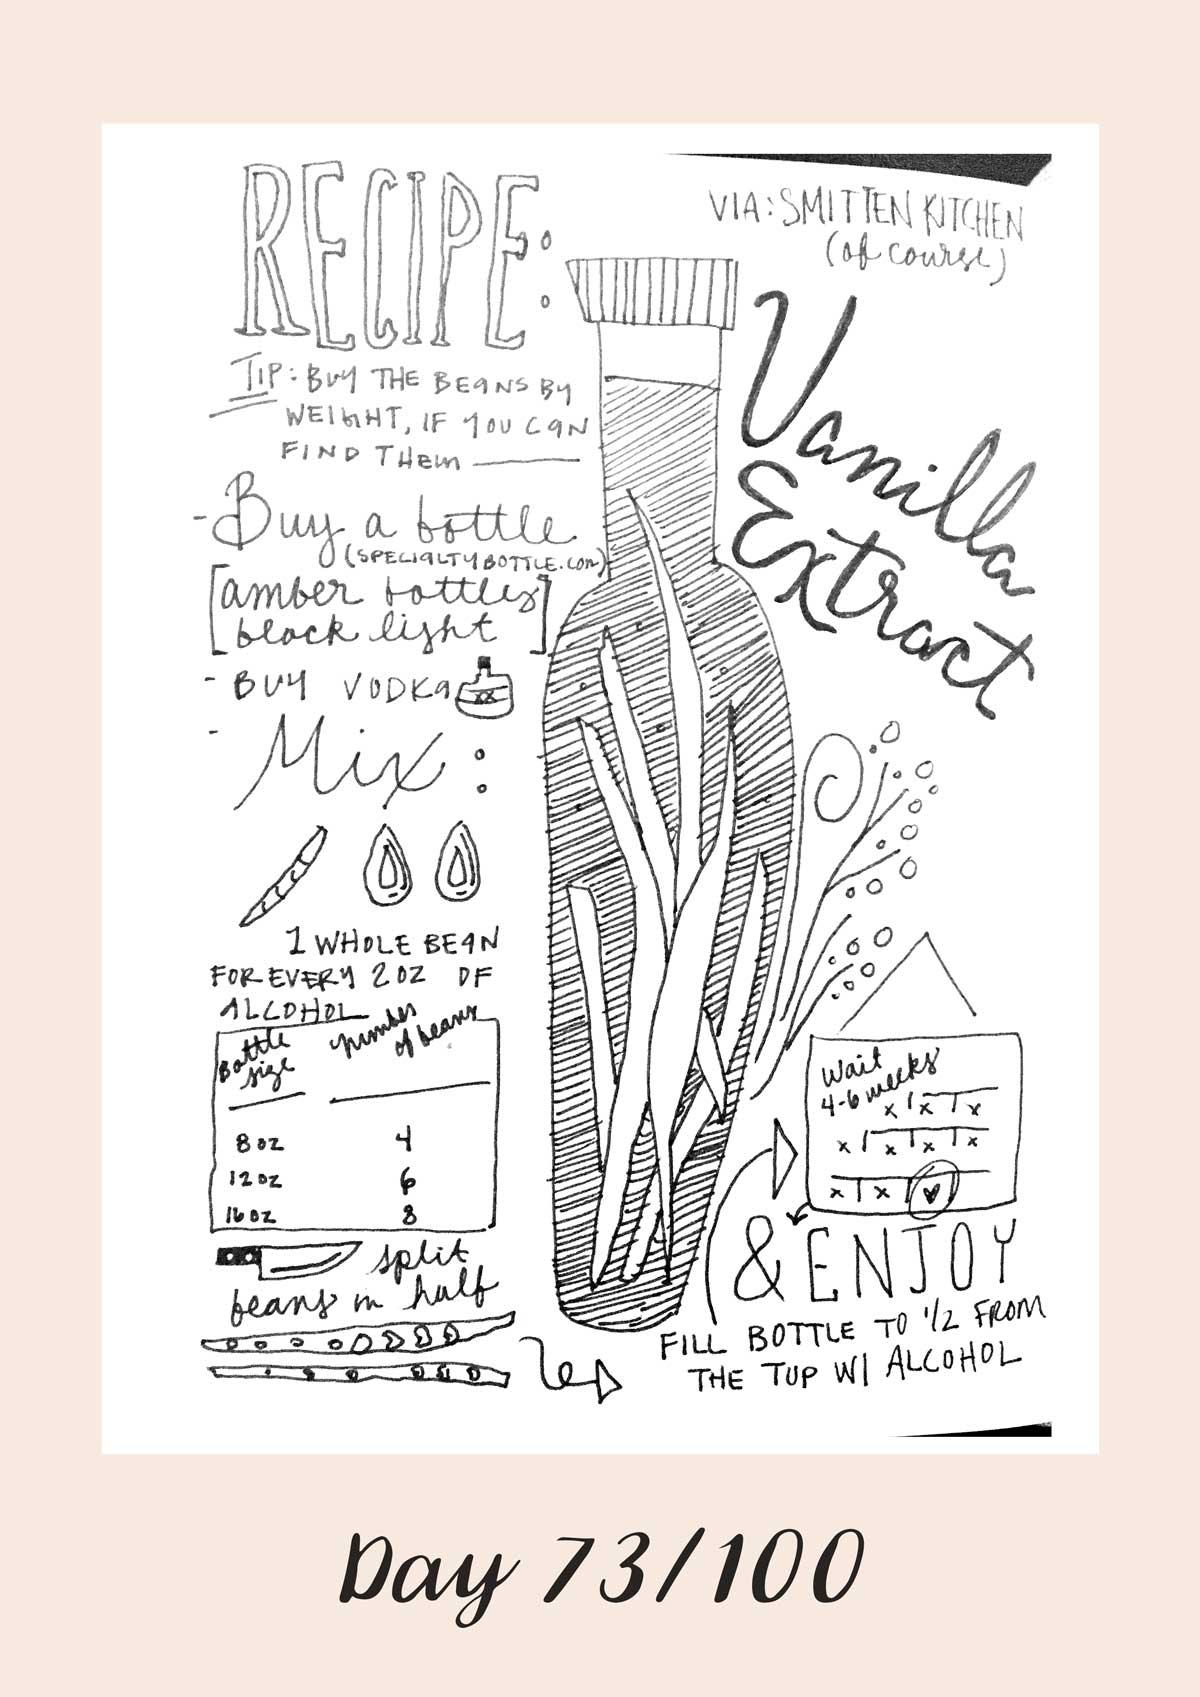 RECIPE:
VIA: SMITTEN KITCHEN
(of course)
Vanilla
Extract
TIP: BUY THE BEANS BY
WEIGHT, IF YOU CAN
FIND THEM
- Buy a bottle
(SPECIALTYBOTTLE.COM)
[amber bottles
block light]
- BUY VODKA
XX
- Mix:
1 WHOLE BEAN
FOR EVERY 2 OZ OF
ALCOHOL
Bottle size
number of beans
8 oz 4
12 oz 6
16 oz 8
split
beans in half
Wait
4-6 weeks
x x x
x x x x
x x
& ENJOY
FILL BOTTLE TO 1/2 FROM
THE TOP W/ ALCOHOL
Day 73/100